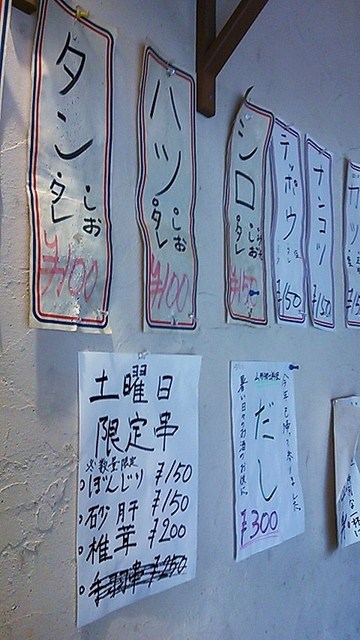 タン
しお
タレ
¥100
ハツ
しお
タレ
¥100
シロ
タレ
¥150
テッポウ
¥150
ナンコツ
¥150
土曜日
限定串
※数量限定
ぼんじり ¥150
砂肝 ¥150
椎茸 ¥200
手羽串 ¥250
今年も帰って参りました
だし
暑い日々のお酒のお供に
¥300